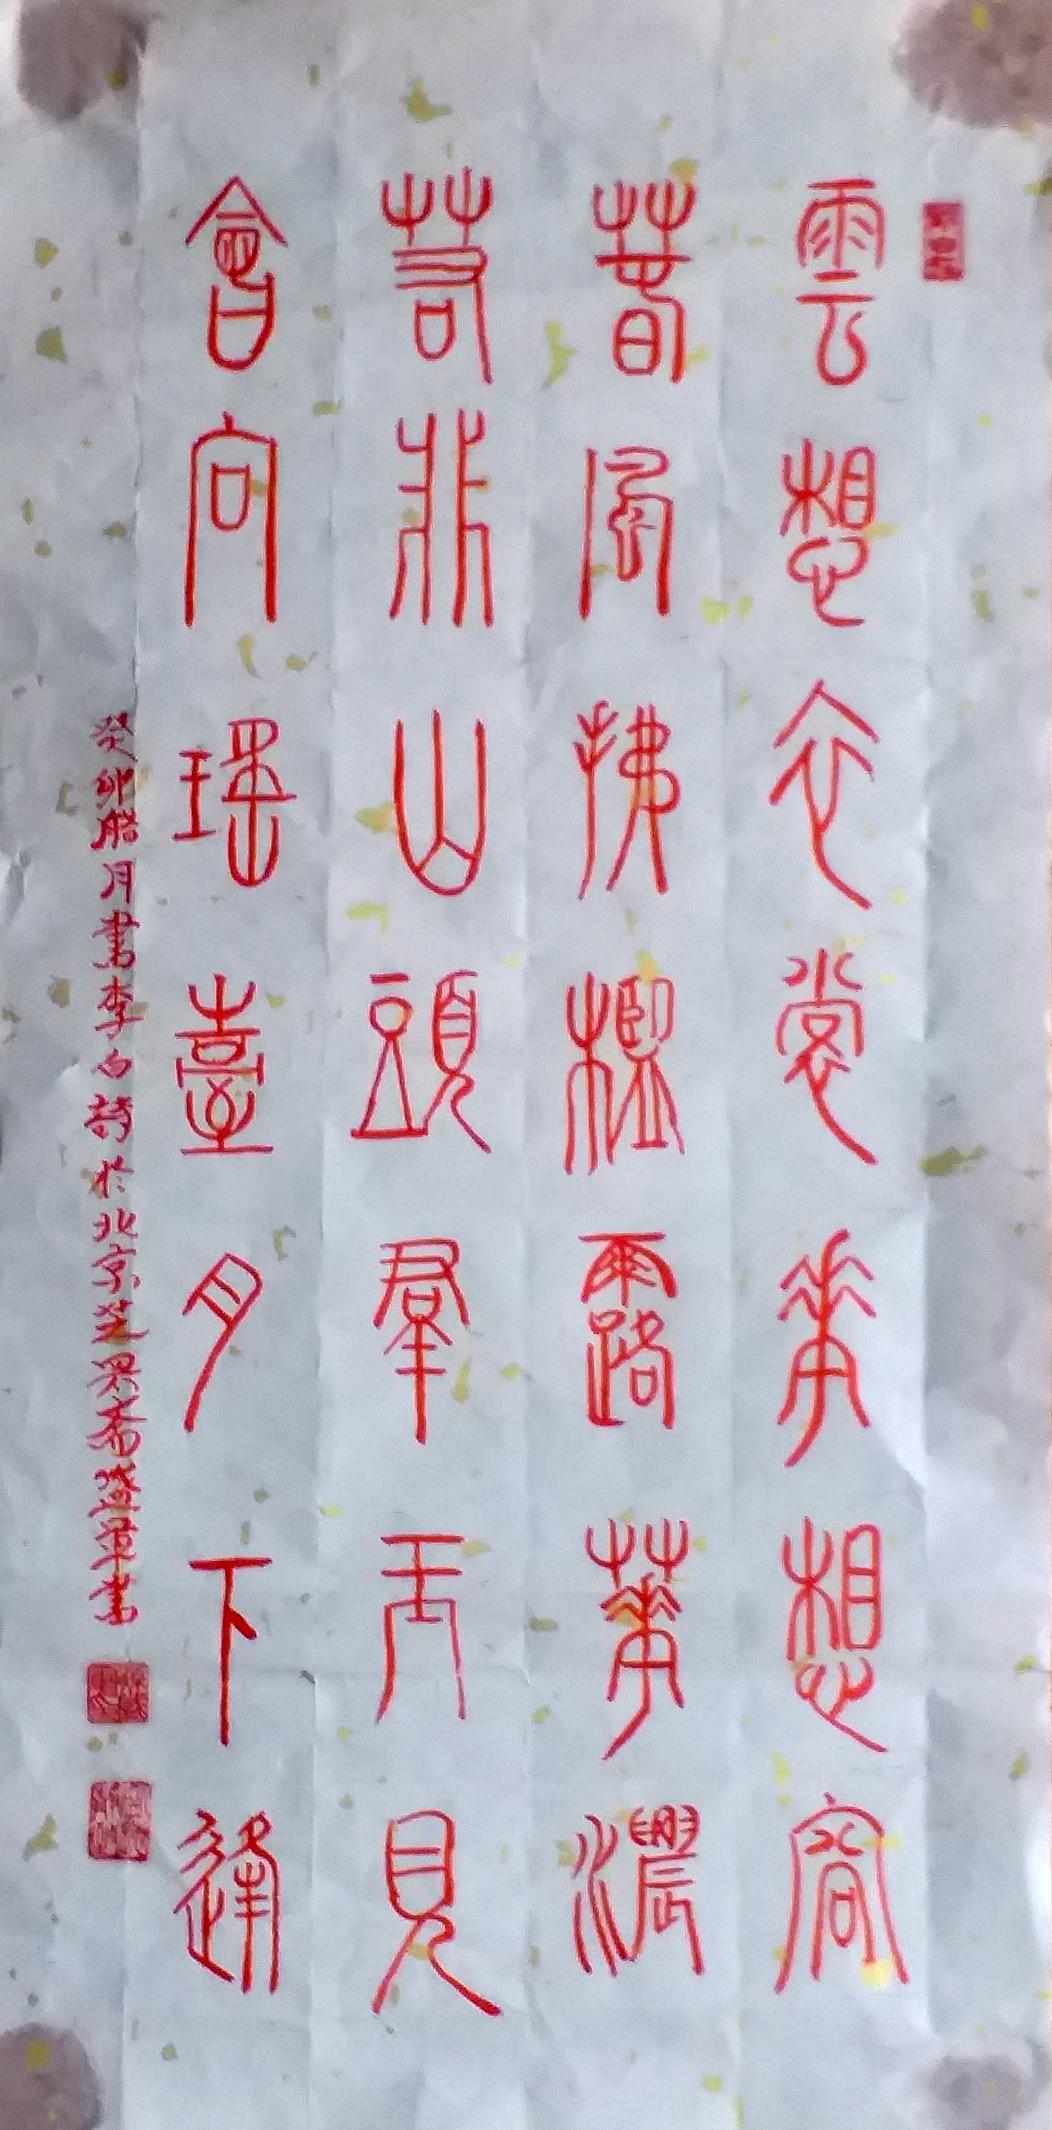 雲想衣裳華想容
萅風拂檻露華濃
若非山頭羣玉見
會向瑤臺月下逢
癸卯臘月書李白詩於北京